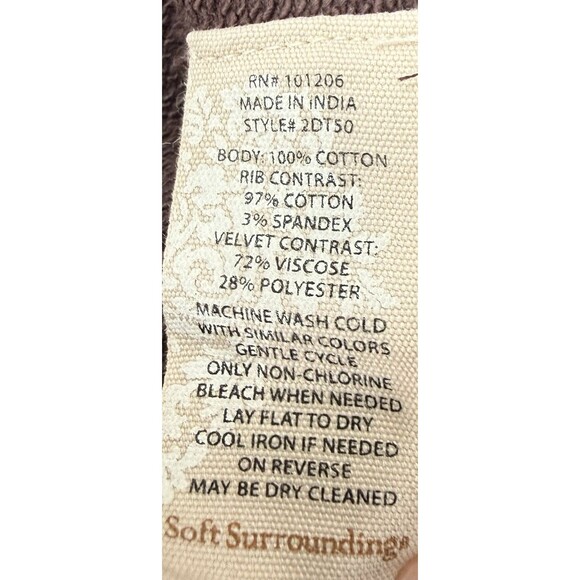 RN# 101206
MADE IN INDIA
STYLE# 2DT50
BODY: 100% COTTON
RIB CONTRAST:
97% COTTON
3% SPANDEX
VELVET CONTRAST:
72% VISCOSE
28% POLYESTER
MACHINE WASH COLD
WITH SIMILAR COLORS
GENTLE CYCLE
ONLY NON-CHLORINE
BLEACH WHEN NEEDED
LAY FLAT TO DRY
COOL IRON IF NEEDED
ON REVERSE
MAY BE DRY CLEANED
Soft Surroundings